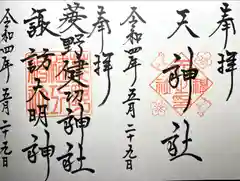 奉拝
天神社
令和四年五月二十九日
奉拝
葵野健功神社
諏訪大明神
令和四年五月二十九日